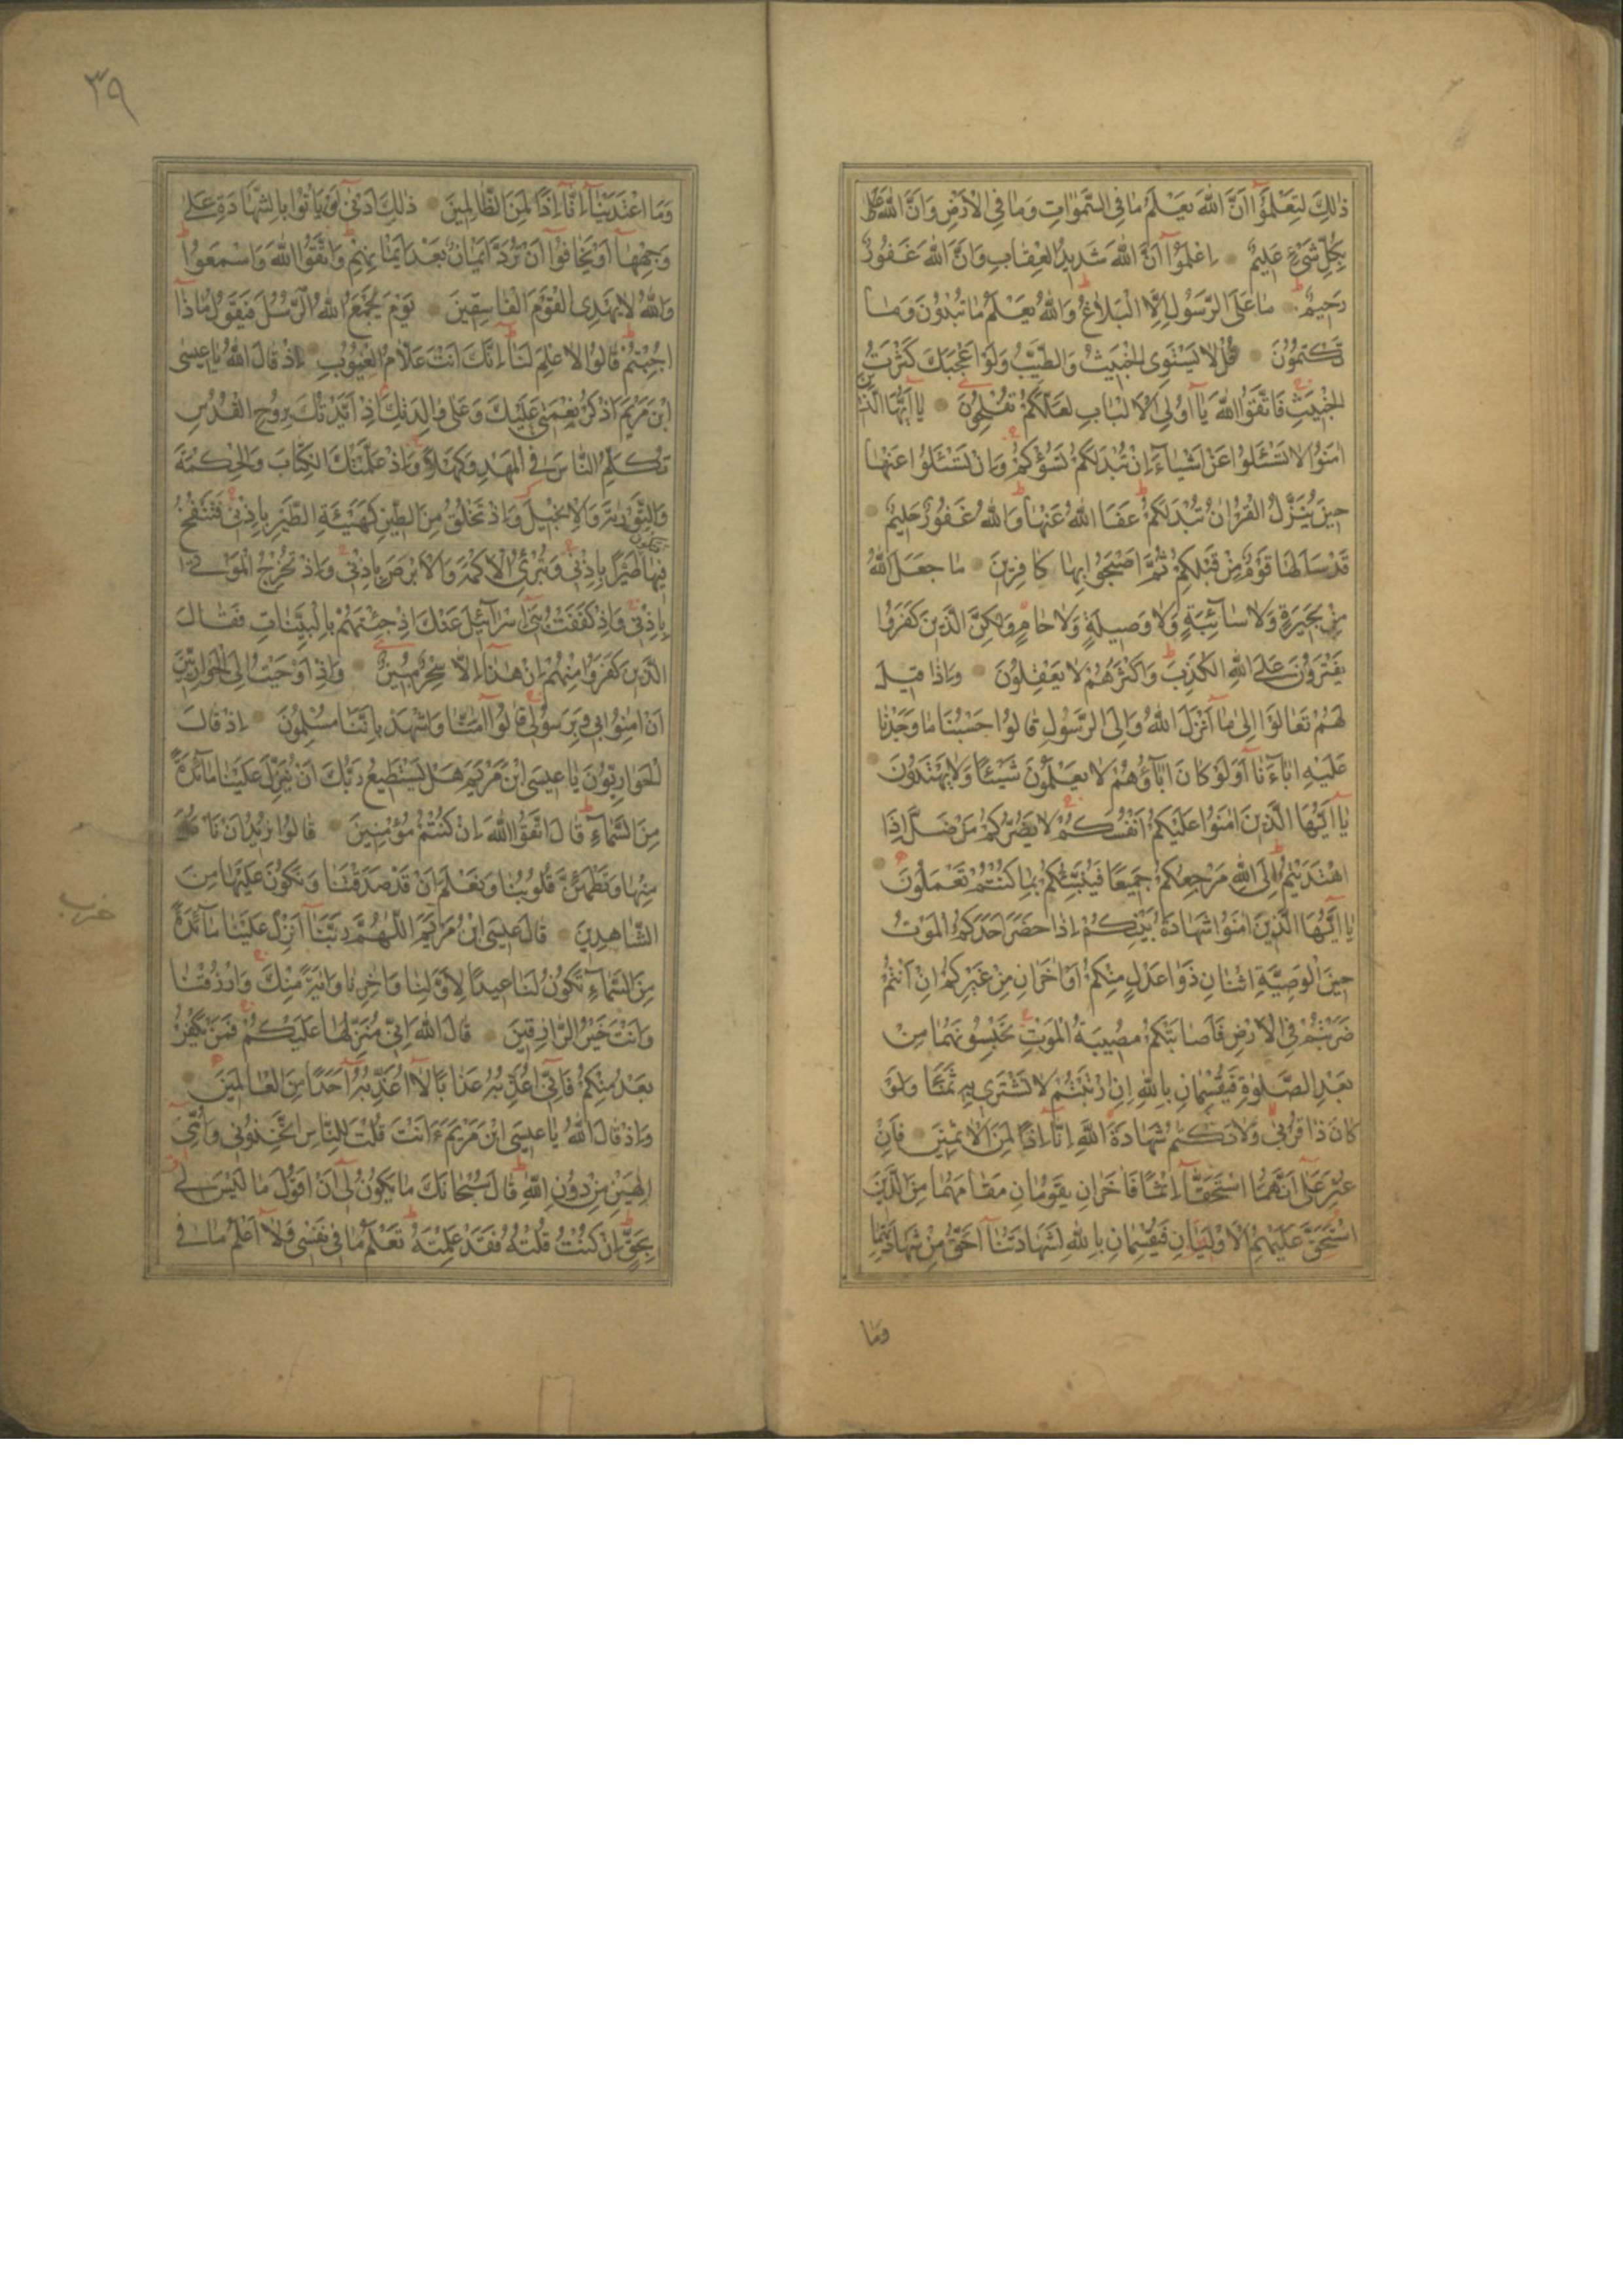 ذٰلِكَ لِتَعْلَمُوٓا اَنَّ اللّٰهَ يَعْلَمُ مَا فِى السَّمٰوٰاتِ وَمَا فِى الْاَرْضِ وَاَنَّ اللّٰهَ
بِكُلِّ شَىْءٍ عَلِيمٌ اِعْلَمُوٓا اَنَّ اللّٰهَ شَدِيدُ الْعِقَابِ وَاَنَّ اللّٰهَ غَفُورٌ
رَحِيمٌ مَا عَلَى الرَّسُولِ اِلَّا الْبَلَاغُ وَاللّٰهُ يَعْلَمُ مَا تُبْدُونَ وَمَا
تَكْتُمُونَ قُلْ لَا يَسْتَوِى الْخَبِيثُ وَالطَّيِّبُ وَلَوْ اَعْجَبَكَ كَثْرَتُ
الْخَبِيثِ فَاتَّقُوا اللّٰهَ يَآ اُولِى الْاَلْبَابِ لَعَلَّكُمْ تُفْلِحُونَ يَآ اَيُّهَا الَّذِينَ
اٰمَنُوا لَا تَسْـَٔلُوا عَنْ اَشْيَآءَ اِنْ تُبْدَ لَكُمْ تَسُؤْكُمْ وَاِنْ تَسْـَٔلُوا عَنْهَا
حِينَ يُنَزَّلُ الْقُرْاٰنُ تُبْدَ لَكُمْ عَفَا اللّٰهُ عَنْهَا وَاللّٰهُ غَفُورٌ حَلِيمٌ
قَدْ سَاَلَهَا قَوْمٌ مِنْ قَبْلِكُمْ ثُمَّ اَصْبَحُوا بِهَا كَافِرِينَ مَا جَعَلَ اللّٰهُ
مِنْ بَحِيرَةٍ وَلَا سَآئِبَةٍ وَلَا وَصِيلَةٍ وَلَا حَامٍ وَلٰكِنَّ الَّذِينَ كَفَرُوا
يَفْتَرُونَ عَلَى اللّٰهِ الْكَذِبَ وَاَكْثَرُهُمْ لَا يَعْقِلُونَ وَاِذَا قِيلَ
لَهُمْ تَعَالَوْا اِلٰى مَآ اَنْزَلَ اللّٰهُ وَاِلَى الرَّسُولِ قَالُوا حَسْبُنَا مَا وَجَدْنَا
عَلَيْهِ اٰبَآءَنَا اَوَلَوْ كَانَ اٰبَآؤُهُمْ لَا يَعْلَمُونَ شَيْئًا وَلَا يَهْتَدُونَ
يَآ اَيُّهَا الَّذِينَ اٰمَنُوا عَلَيْكُمْ اَنْفُسَكُمْ لَا يَضُرُّكُمْ مَنْ ضَلَّ اِذَا
اهْتَدَيْتُمْ اِلَى اللّٰهِ مَرْجِعُكُمْ جَمِيعًا فَيُنَبِّئُكُمْ بِمَا كُنْتُمْ تَعْمَلُونَ
يَآ اَيُّهَا الَّذِينَ اٰمَنُوا شَهَادَةُ بَيْنِكُمْ اِذَا حَضَرَ اَحَدَكُمُ الْمَوْتُ
حِينَ الْوَصِيَّةِ اثْنَانِ ذَوَا عَدْلٍ مِنْكُمْ اَوْ اٰخَرَانِ مِنْ غَيْرِكُمْ اِنْ اَنْتُمْ
ضَرَبْتُمْ فِى الْاَرْضِ فَاَصَابَتْكُمْ مُصِيبَةُ الْمَوْتِ تَحْبِسُونَهُمَا مِنْ
بَعْدِ الصَّلٰوةِ فَيُقْسِمَانِ بِاللّٰهِ اِنِ ارْتَبْتُمْ لَا نَشْتَرِى بِهِ ثَمَنًا وَلَوْ
كَانَ ذَا قُرْبٰى وَلَا نَكْتُمُ شَهَادَةَ اللّٰهِ اِنَّآ اِذًا لَمِنَ الْاٰثِمِينَ فَاِنْ
عُثِرَ عَلٰى اَنَّهُمَا اسْتَحَقَّآ اِثْمًا فَاٰخَرَانِ يَقُومَانِ مَقَامَهُمَا مِنَ الَّذِينَ
اسْتَحَقَّ عَلَيْهِمُ الْاَوْلَيَانِ فَيُقْسِمَانِ بِاللّٰهِ لَشَهَادَتُنَآ اَحَقُّ مِنْ شَهَادَتِهِمَا
وَمَا
٣٩
وَمَا اعْتَدَيْنَآ اِنَّآ اِذًا لَمِنَ الظَّالِمِينَ ذٰلِكَ اَدْنٰٓى اَنْ يَاْتُوا بِالشَّهَادَةِ عَلٰى
وَجْهِهَآ اَوْ يَخَافُوٓا اَنْ تُرَدَّ اَيْمَانٌ بَعْدَ اَيْمَانِهِمْ وَاتَّقُوا اللّٰهَ وَاسْمَعُوا
وَاللّٰهُ لَا يَهْدِى الْقَوْمَ الْفَاسِقِينَ يَوْمَ يَجْمَعُ اللّٰهُ الرُّسُلَ فَيَقُولُ مَاذَآ
اُجِبْتُمْ قَالُوا لَا عِلْمَ لَنَآ اِنَّكَ اَنْتَ عَلَّامُ الْغُيُوبِ اِذْ قَالَ اللّٰهُ يَا عِيسَى
ابْنَ مَرْيَمَ اذْكُرْ نِعْمَتِى عَلَيْكَ وَعَلٰى وَالِدَتِكَ اِذْ اَيَّدْتُكَ بِرُوحِ الْقُدُسِ
تُكَلِّمُ النَّاسَ فِى الْمَهْدِ وَكَهْلًا وَاِذْ عَلَّمْتُكَ الْكِتَابَ وَالْحِكْمَةَ
وَالتَّوْرٰيةَ وَالْاِنْجِيلَ وَاِذْ تَخْلُقُ مِنَ الطِّينِ كَهَيْئَةِ الطَّيْرِ بِاِذْنِى فَتَنْفُخُ
فِيهَا فَتَكُونُ طَيْرًا بِاِذْنِى وَتُبْرِئُ الْاَكْمَهَ وَالْاَبْرَصَ بِاِذْنِى وَاِذْ تُخْرِجُ الْمَوْتٰى
بِاِذْنِى وَاِذْ كَفَفْتُ بَنِىٓ اِسْرَآئِيلَ عَنْكَ اِذْ جِئْتَهُمْ بِالْبَيِّنَاتِ فَقَالَ
الَّذِينَ كَفَرُوا مِنْهُمْ اِنْ هٰذَآ اِلَّا سِحْرٌ مُبِينٌ وَاِذْ اَوْحَيْتُ اِلَى الْحَوَارِيِّينَ
اَنْ اٰمِنُوا بِى وَبِرَسُولِى قَالُوٓا اٰمَنَّا وَاشْهَدْ بِاَنَّنَا مُسْلِمُونَ اِذْ قَالَ
الْحَوَارِيُّونَ يَا عِيسَى ابْنَ مَرْيَمَ هَلْ يَسْتَطِيعُ رَبُّكَ اَنْ يُنَزِّلَ عَلَيْنَا مَآئِدَةً
مِنَ السَّمَآءِ قَالَ اتَّقُوا اللّٰهَ اِنْ كُنْتُمْ مُؤْمِنِينَ قَالُوا نُرِيدُ اَنْ نَاْكُلَ
مِنْهَا وَتَطْمَئِنَّ قُلُوبُنَا وَنَعْلَمَ اَنْ قَدْ صَدَقْتَنَا وَنَكُونَ عَلَيْهَا مِنَ
حزب
الشَّاهِدِينَ قَالَ عِيسَى ابْنُ مَرْيَمَ اللّٰهُمَّ رَبَّنَآ اَنْزِلْ عَلَيْنَا مَآئِدَةً
مِنَ السَّمَآءِ تَكُونُ لَنَا عِيدًا لِاَوَّلِنَا وَاٰخِرِنَا وَاٰيَةً مِنْكَ وَارْزُقْنَا
وَاَنْتَ خَيْرُ الرَّازِقِينَ قَالَ اللّٰهُ اِنِّى مُنَزِّلُهَا عَلَيْكُمْ فَمَنْ يَكْفُرْ
بَعْدُ مِنْكُمْ فَاِنِّٓى اُعَذِّبُهُ عَذَابًا لَآ اُعَذِّبُهُٓ اَحَدًا مِنَ الْعَالَمِينَ
وَاِذْ قَالَ اللّٰهُ يَا عِيسَى ابْنَ مَرْيَمَ ءَاَنْتَ قُلْتَ لِلنَّاسِ اتَّخِذُونِى وَاُمِّىَ
اِلٰهَيْنِ مِنْ دُونِ اللّٰهِ قَالَ سُبْحَانَكَ مَا يَكُونُ لِىٓ اَنْ اَقُولَ مَا لَيْسَ لِى
بِحَقٍّ اِنْ كُنْتُ قُلْتُهُ فَقَدْ عَلِمْتَهُ تَعْلَمُ مَا فِى نَفْسِى وَلَآ اَعْلَمُ مَا فِى